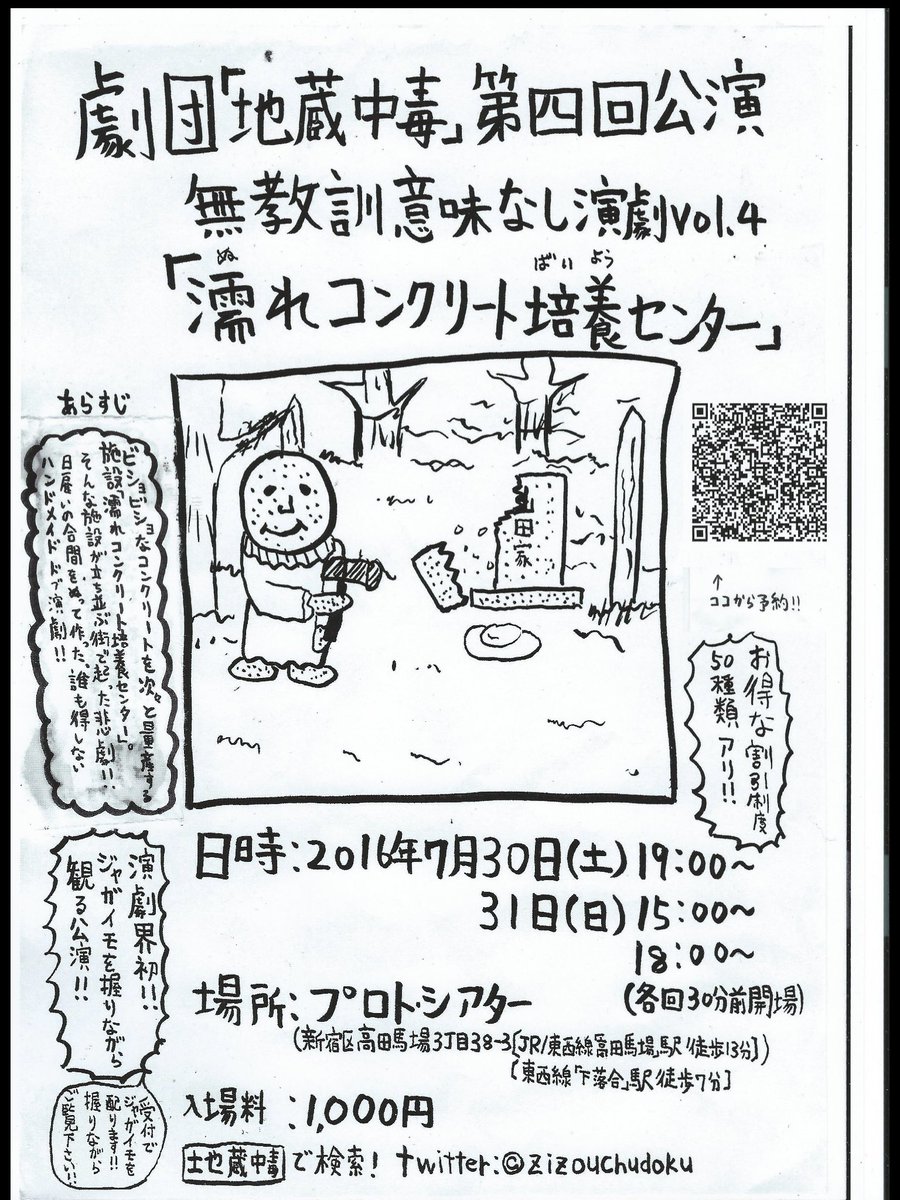 劇団「地蔵中毒」第四回公演
無教訓意味なし演劇vol.4
「濡れコンクリート培養センター」
ぬ
ばい よう
あらすじ
ビショビショなコンクリートを次々と量産する
施設「濡れコンクリート培養センター」。
そんな施設が立ち並ぶ街で起った悲劇!!
日雇いの合間をぬって作った、誰も得しない
ハンドメイドドブ演劇!!
山田家
↑
ココから予約!!
お得な割引制度
50種類アリ!!
演劇界初!!
ジャガイモを握りながら
観る公演!!
受付で
ジャガイモを
配ります!!
握りながら
ご覧下さい!!
日時:2016年7月30日(土)19:00~
31日(日)15:00~
18:00~
(各回30分前開場)
場所:プロト・シアター
(新宿区高田馬場3丁目38-3[JR/東西線「高田馬場」駅/徒歩13分])
[東西線「下落合」駅/徒歩7分]
入場料:1,000円
地蔵中毒で検索! twitter:@zizouchudoku